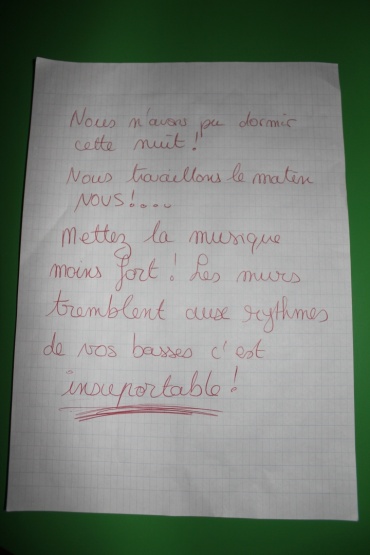 Nous n'avons pu dormir
cette nuit !
Nous travaillons le matin
NOUS!....
Mettez la musique
moins fort ! Les murs
tremblent aux rythmes
de vos basses c'est
insuportable !